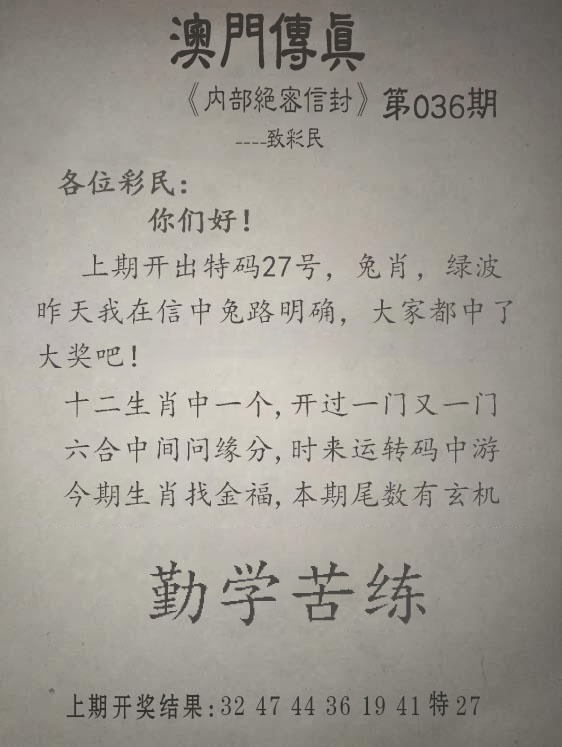 澳門傳眞
《内部絕密信封》第036期
----致彩民
各位彩民:
你们好!
上期开出特码27号,兔肖,绿波
昨天我在信中兔路明确,大家都中了
大奖吧!
十二生肖中一个,开过一门又一门
六合中间问缘分,时来运转码中游
今期生肖找金福,本期尾数有玄机
勤学苦练
上期开奖结果:32 47 44 36 19 41 特 27